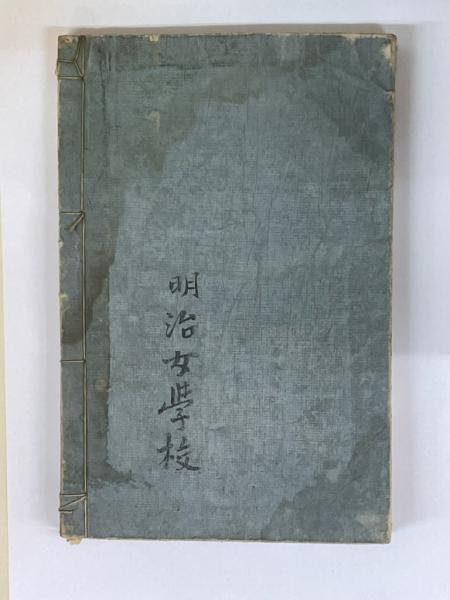 明治女學校